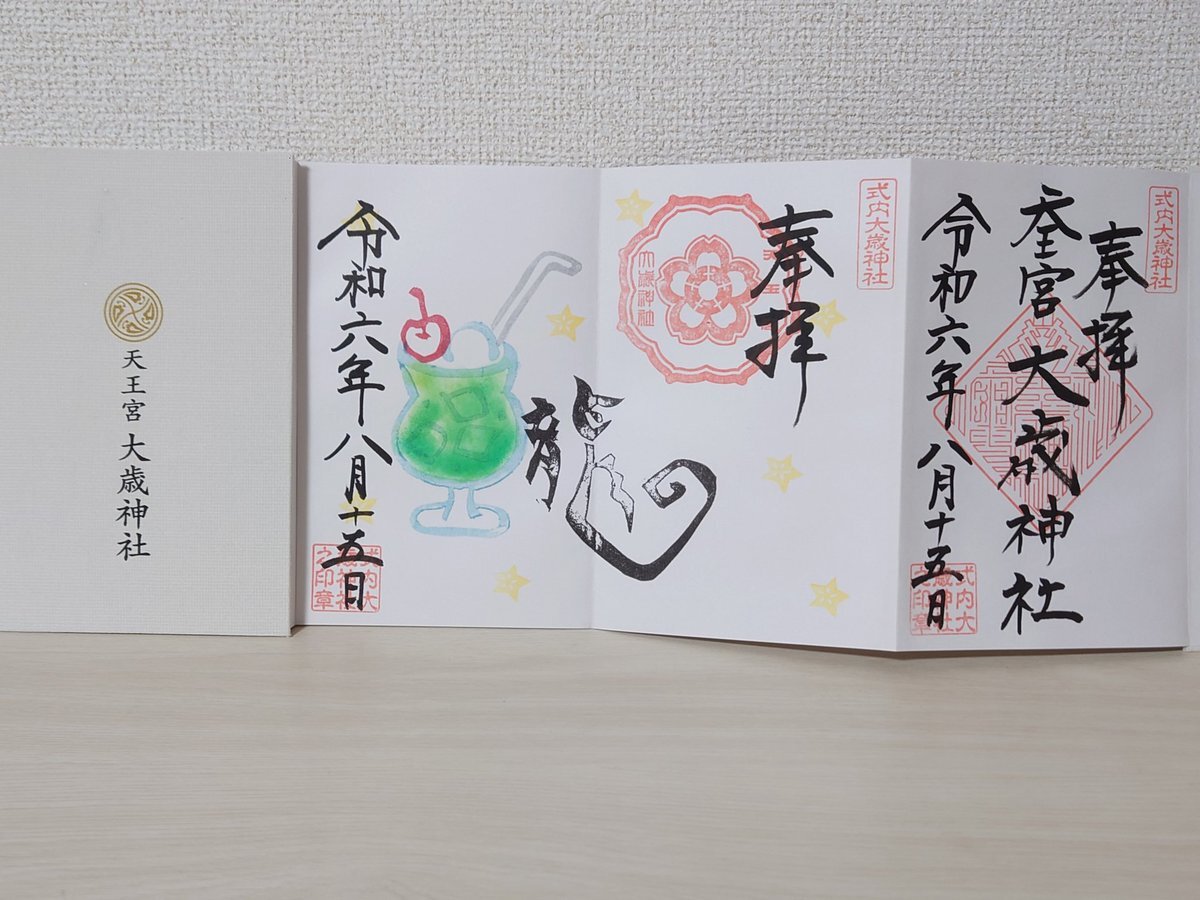 式内大歳神社
奉拝
天王宮大歳神社
令和六年八月十五日
式内大
歳神社
之印章
式内大歳神社
奉拝
大歳神社
龍
令和六年八月十五日
式内大
歳神社
之印章
天王宮大歳神社